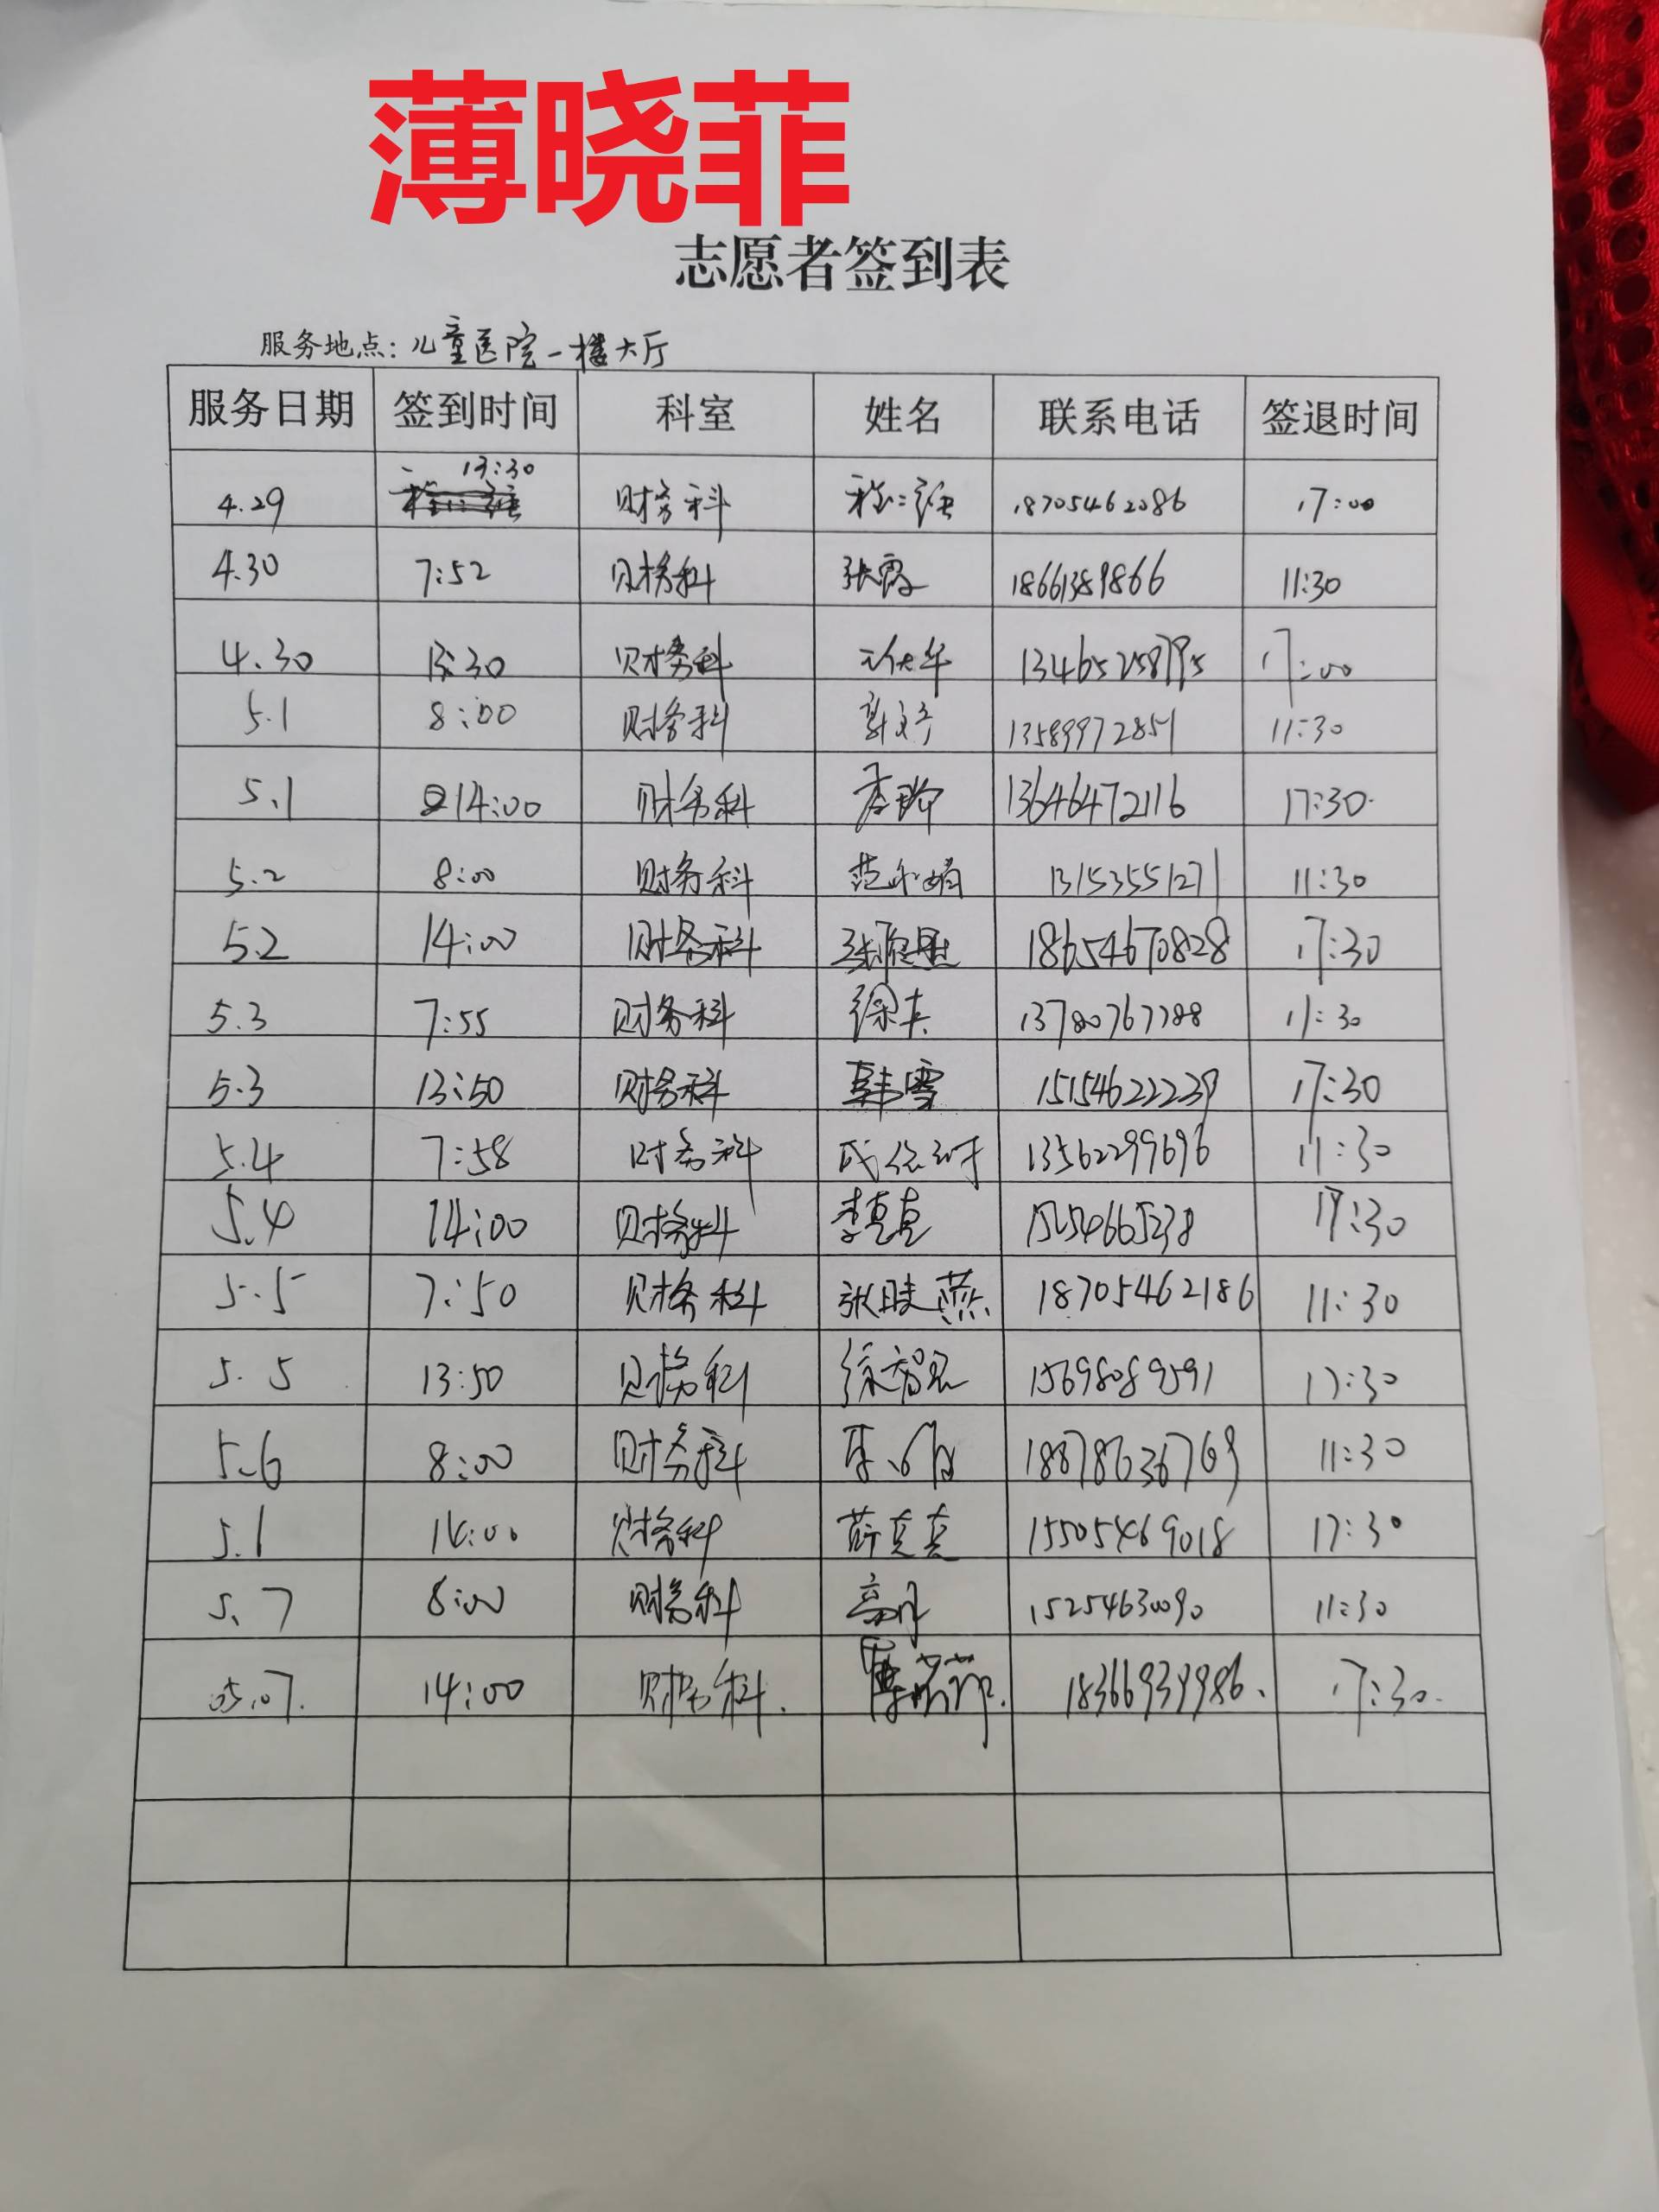 薄晓菲
志愿者签到表
服务地点：儿童医院一楼大厅
服务日期 签到时间 科室 姓名 联系电话 签退时间
4.29 13:30 财务科 18705462086 17:00
4.30 7:52 财务科 张霞 18661389866 11:30
4.30 13:30 财务科 17:00
5.1 8:00 财务科 13589972851 11:30
5.1 14:00 财务科 13646472116 17:30
5.2 8:00 财务科 13153551271 11:30
5.2 14:00 财务科 18654670828 17:30
5.3 7:55 财务科 11:30
5.3 13:50 财务科 韩雪 15154622239 17:30
5.4 7:58 财务科 13562299696 11:30
5.4 14:00 财务科 李真真 17:30
5.5 7:50 财务科 18705462186 11:30
5.5 13:50 财务科 15698089591 17:30
5.6 8:00 财务科 18878636769 11:30
14:00 财务科 薛真真 15505469018 17:30
5.7 8:00 财务科 15254630090 11:30
05.07. 14:00 财务科. 18366939986. 17:30.